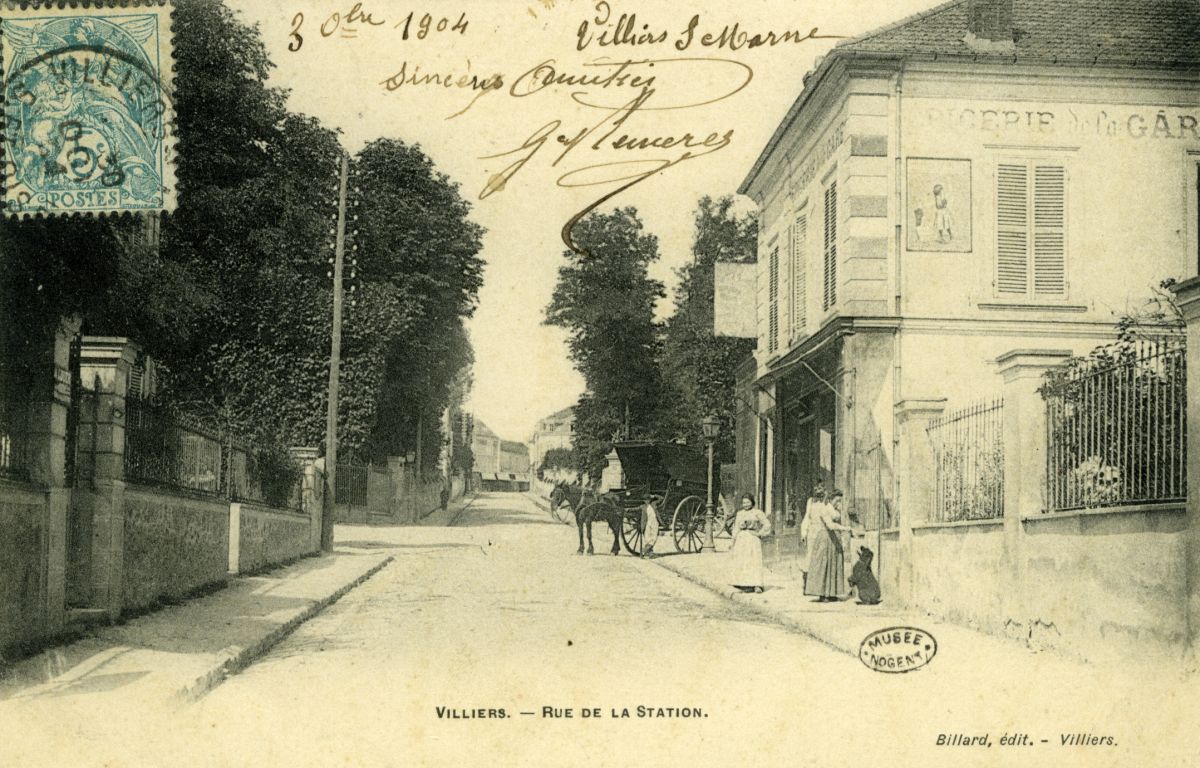 3 8bre 1904
Villiers S Marne
Sincères Amitiés
VILLIERS
POSTES
ÉPICERIE de la GARE
MUSÉE
NOGENT
VILLIERS. — RUE DE LA STATION.
Billard, édit. - Villiers.